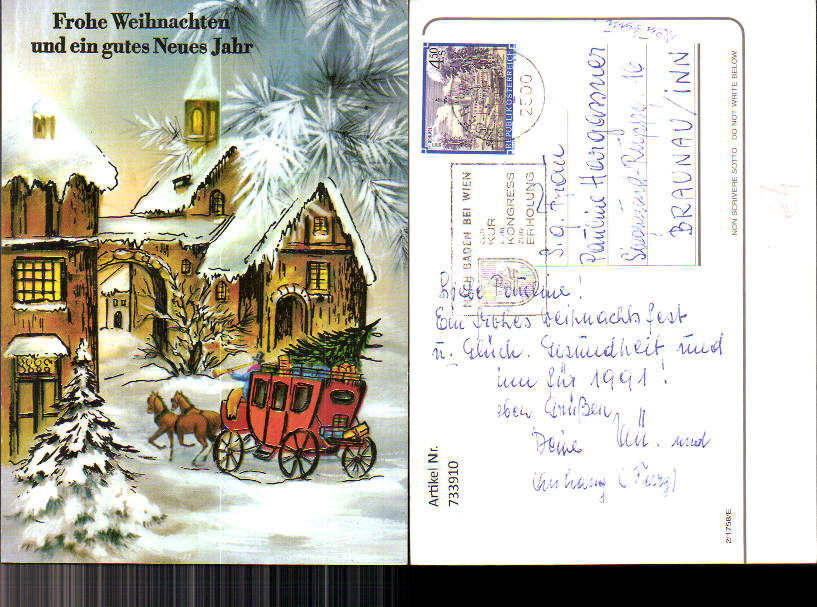 Frohe Weihnachten
und ein gutes Neues Jahr
4.50
S
REPUBLIK ÖSTERREICH
2500
NACH BADEN BEI WIEN
ZUR
KUR
ZUM
KONGRESS
ZUR
ERHOLUNG
Frau
Pauline Hargassner
16
BRAUNAU/INN
NON SCRIVERE SOTTO DO NOT WRITE BELOW
Liebe Pauline!
Ein frohes Weihnachtsfest
u. Glück, Gesundheit und
für 1991!
Grüßen
Deine und
Anhang
Artikel Nr.
733910
2/1758/E